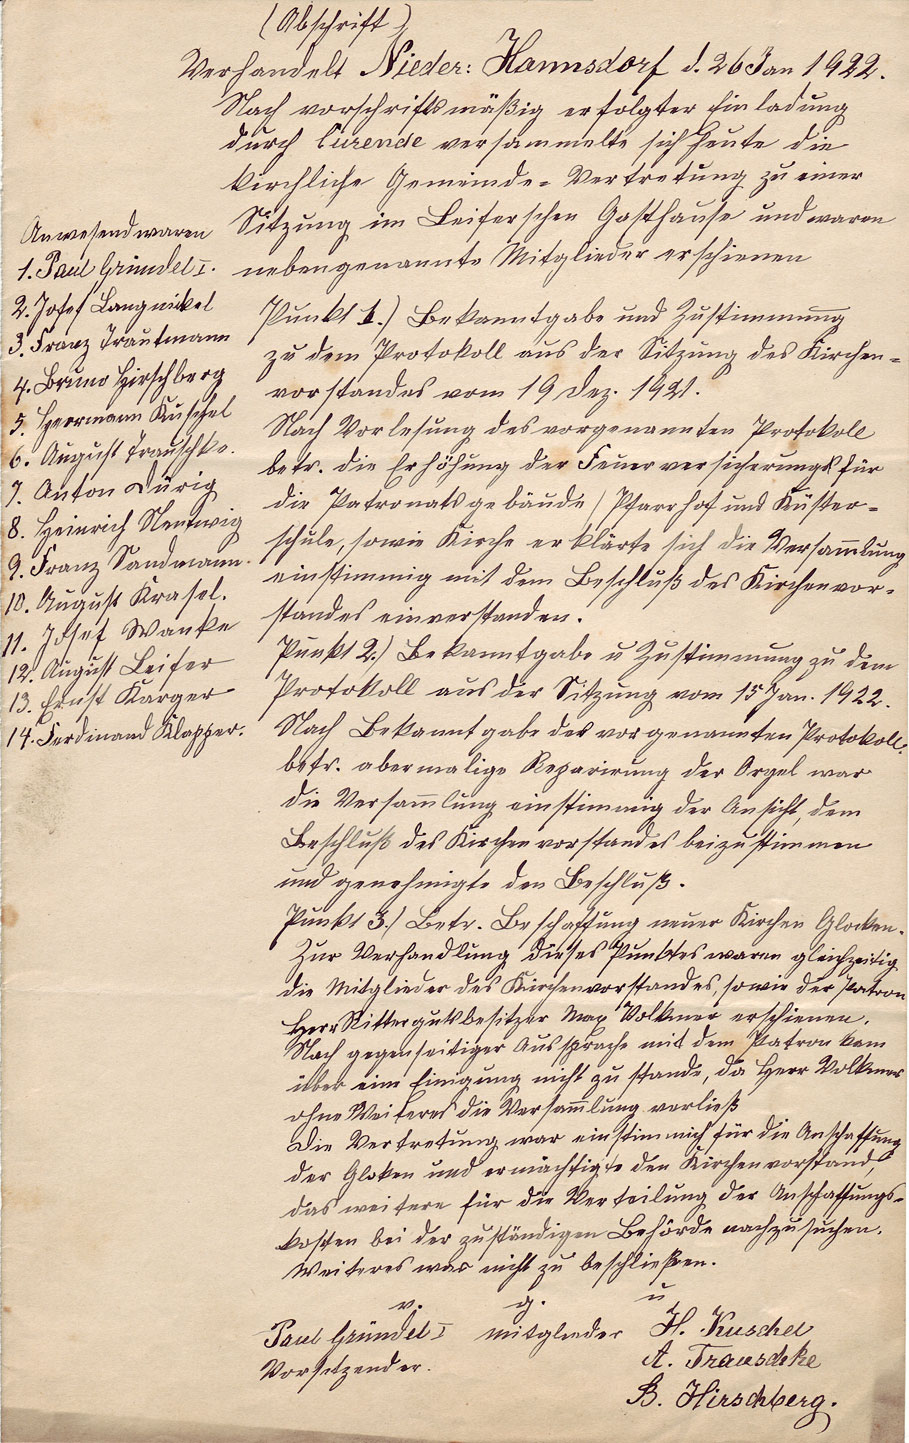 (Abschrift)
Verhandelt Nieder: Hannsdorf d. 26 Jan 1922.
Nach vorschriftsmäßig erfolgter Einladung
durch Curende versammelte sich heute die
kirchliche Gemeinde-Vertretung zu einer
Sitzung im Leiferschen Gasthause und waren
nebengenannte Mitglieder erschienen
Anwesend waren
1. Paul Gründel I.
2. Josef Langnickel
3. Franz Trautmann
4. Bruno Hirschberg
5. Herrmann Kuschel
6. August Trauschke.
7. Anton Dürig
8. Heinrich Nentwig
9. Franz Sandmann.
10. August Krasel.
11. Josef Wanke
12. August Leifer
13. Ernst Karger
14. Ferdinand Klapper.
Punkt 1.) Bekanntgabe und Zustimmung
zu dem Protokoll aus der Sitzung des Kirchen-
vorstandes vom 19 Dez. 1921.
Nach Vorlesung des vorgenannten Protokoll
betr. die Erhöhung der Feuerversicherung für
die Patronatsgebäude / Pfarrhof und Küster-
schule, sowie Kirche erklärte sich die Versam̅lung
einstimmig mit dem Beschluß des Kirchenvor-
standes einverstanden.
Punkt 2.) Bekanntgabe u Zustimmung zu dem
Protokoll aus der Sitzung vom 15 Jan. 1922.
Nach Bekanntgabe des vorgenannten Protokoll.
betr. abermalige Reparirung der Orgel war
die Versam̅lung einstimmig der Ansicht, dem
Beschluß des Kirchenvorstandes beizustimmen
und genehmigte den Beschluß.
Punkt 3.) Betr. Beschaffung neuer Kirchen Glocken.
Zur Verhandlung dieses Punktes waren gleichzeitig
die Mitglieder des Kirchenvorstandes, sowie der Patron
Herr Rittergutsbesitzer Max Volkmer erschienen.
Nach gegenseitiger Aussprache mit dem Patron kam
über eine Einigung nicht zu stande, da Herr Volkmer
ohne Weiteres die Versam̅lung verließ
Die Vertretung war einstimmich für die Anschaffung
der Gloken und ermächtigte den Kirchenvorstand,
das weitere für die Verteilung der Anschaffungs-
kosten bei der zuständigen Behörde nachzusuchen.
Weiteres war nicht zu beschließen.
v. g. u
Paul Gründel I Mitglieder H. Kuschel
Vorsitzender. A. Trauschke
B. Hirschberg.